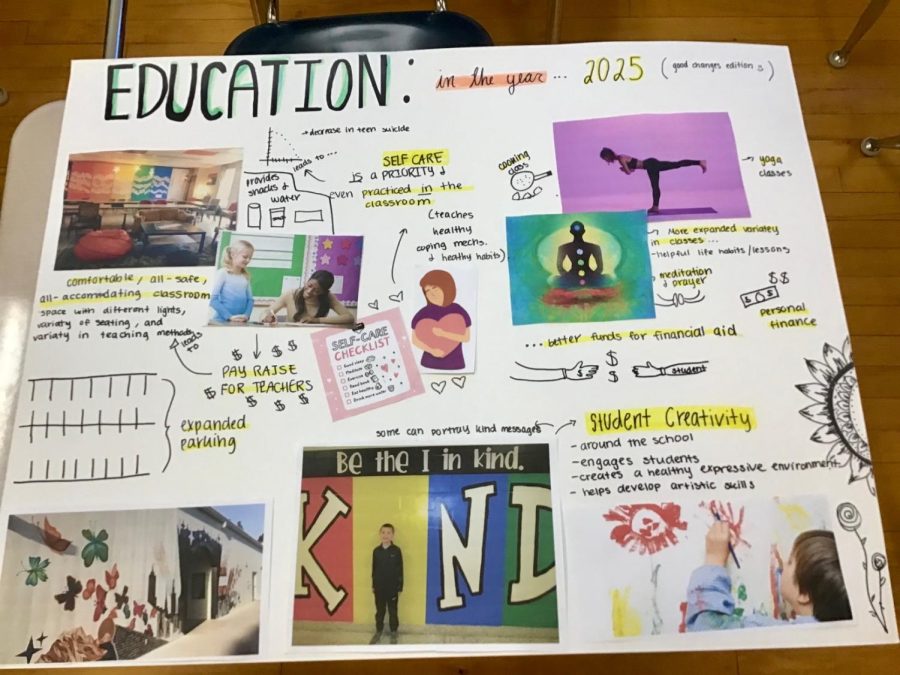 EDUCATION: in the year ... 2025 (good changes edition :)
→ decrease in teen suicide
leads to ...
provides
snacks &
water
SELF CARE
IS a PRIORITY &
even practiced in the
classroom
(teaches
healthy
coping mechs.
& healthy habits)
cooking
class
→ yoga
classes
→ More expanded variatey
in classes ...
- helpful life habits/lessons
→ meditation
& prayer
$$
$
personal
finance
comfortable, all-safe,
all-accommdating classroom
space with different lights,
variaty of seating, and
variaty in teaching methods
leads
to
PAY RAISE
FOR TEACHERS
$ $ $ $ $ $ $ $
SELF-CARE
CHECKLIST
Good sleep
Meditate
Exercise
Read book
Eat healthy
Drink more water
... better funds for financial aid
$
$
student
expanded
parking
some can portray kind messages
Student Creativity
- around the school
- engages students
- creates a healthy expressive environment
- helps develop artistic skills
Be the I in kind.
K ND